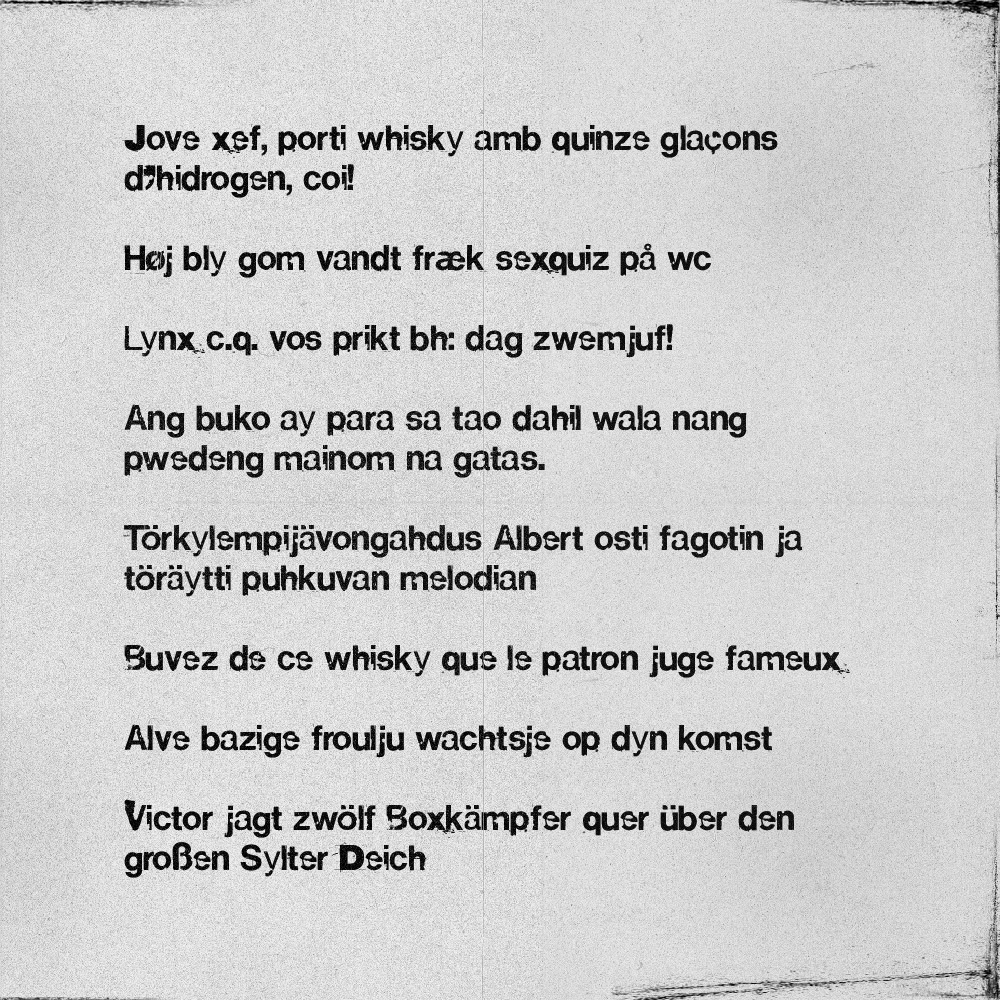 Jove xef, porti whisky amb quinze glaçons
d'hidrogen, coi!
Høj bly gom vandt fræk sexquiz på wc
Lynx c.q. vos prikt bh: dag zwemjuf!
Ang buko ay para sa tao dahil wala nang
pwedeng mainom na gatas.
Törkylempijävongahdus Albert osti fagotin ja
töräytti puhkuvan melodian
Buvez de ce whisky que le patron juge fameux
Alve bazige froulju wachtsje op dyn komst
Victor jagt zwölf Boxkämpfer quer über den
großen Sylter Deich